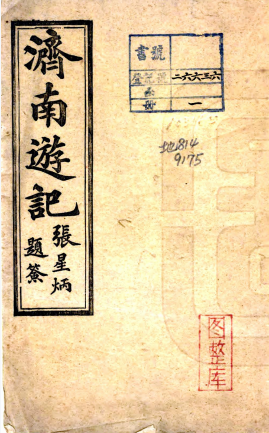 濟南遊記
張星炳
題簽
書號
登記號 二六六三六
册 一
地814
9175
图整库